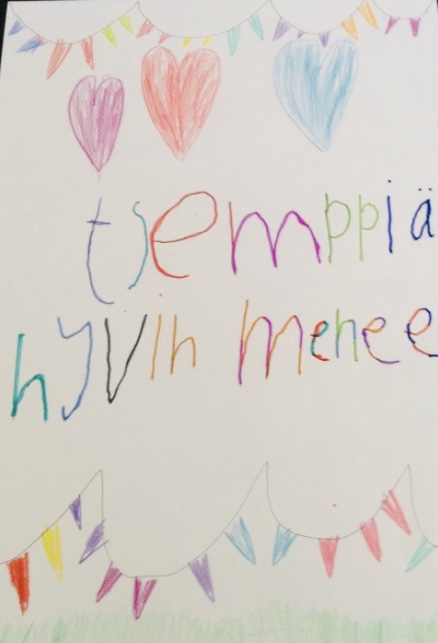 tsemppiä
hyvin menee